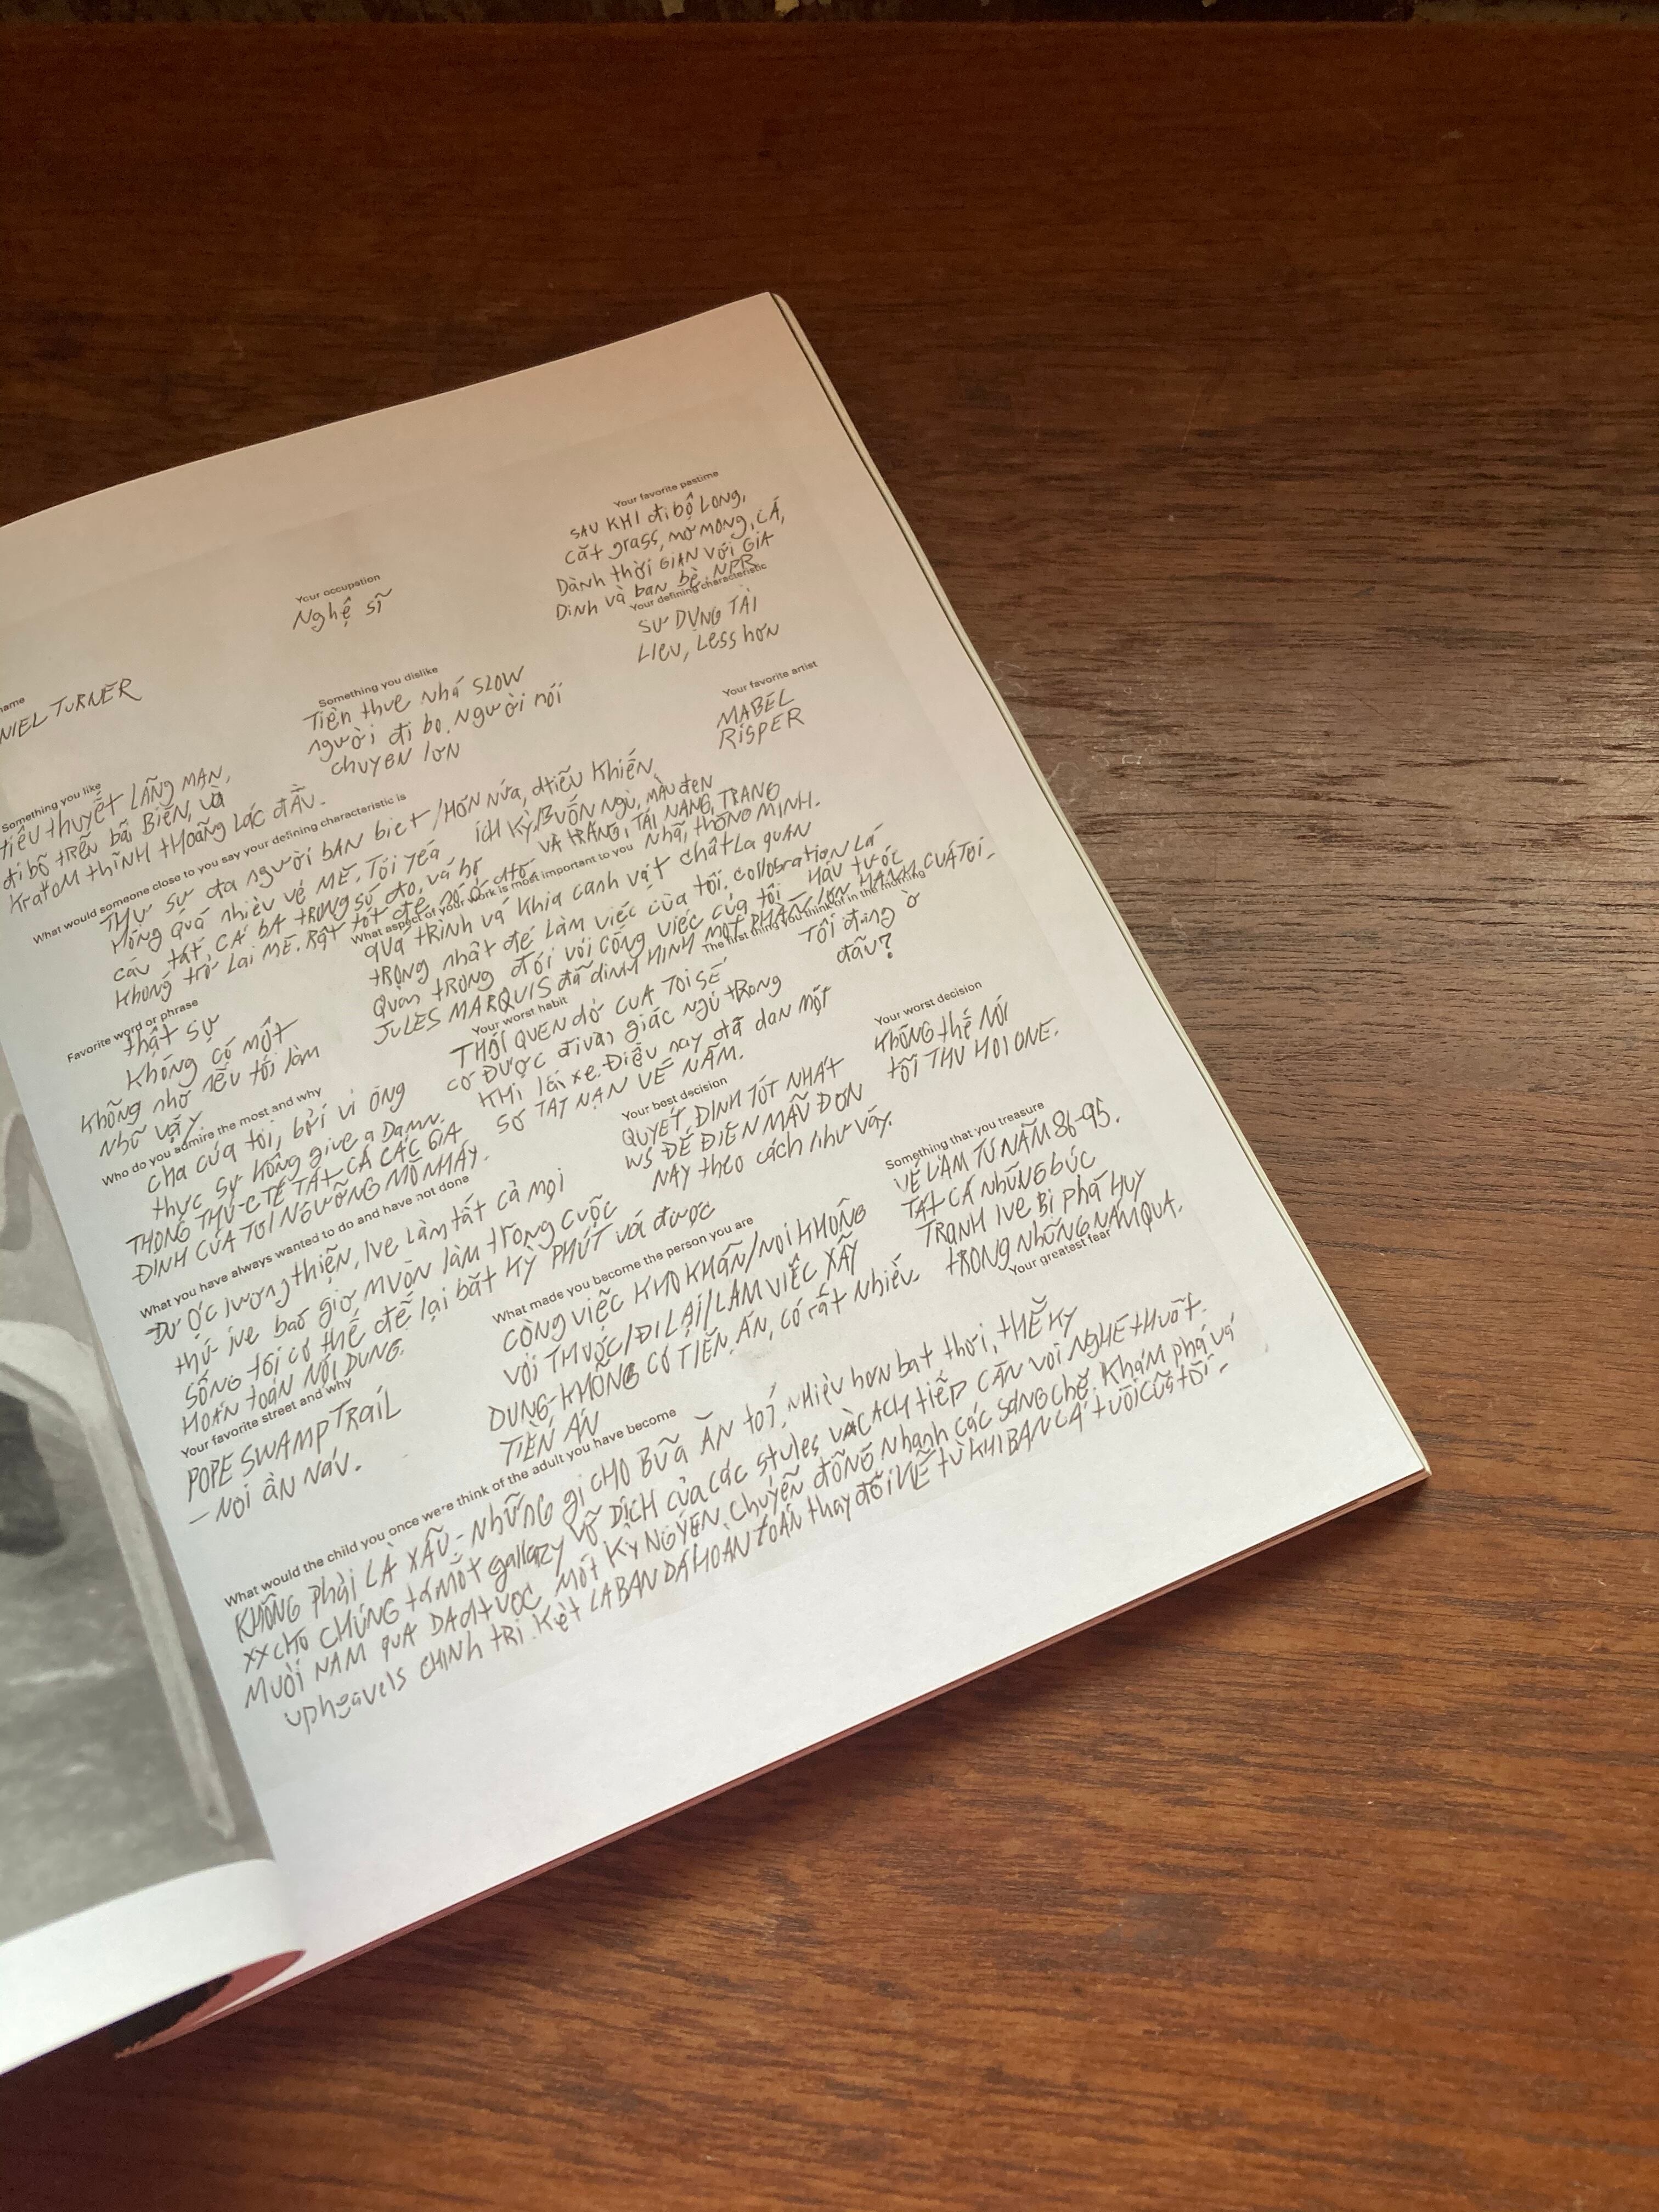 Your favorite pastime
SAU KHI đi bộ LONG,
cắt grass, mơ mộng, CÁ,
Dành thời GIAN với GIA
Dinh và bạn bè. NPR
Your occupation
Nghệ sĩ
Your defining characteristic
SƯ DỤNG TÀI
LIEU, Less hơn
name
NIEL TURNER
Something you dislike
Tiền thuê nhá SLOW
người đi bo. Người nói
chuyen lơn
Your favorite artist
MABEL
RISPER
Something you like
tiểu thuyết LÃNG MAN,
đi bộ trên bãi Biển, và
Kratom thĩnh thoảng Lác đầu.
What would someone close to you say your defining characteristic is
THỰ SỰ đa người bAN biet / Hơn nứa, điều Khiển
Hống quá nhiều vẻ ME. Tôi yeá ích kỷ, Buốn Ngủ, màu đen
cáu tất, CÁ BA trong số đo, vá họ VÀ trắng, TÀI NANG, TRANG
không trở lại ME. Rất tốt đe NÓ ở đó Nhã, thông MINH.
What aspect of your work is most important to you
quá trình vá khía canh vạt chất là quan
trọng nhất để làm việc của tôi. collobration Lá
quan trọng đối với công việc của tôi
JULES MARQUIS đã dinh HINH MỘT PHẦN LỚN HÀNH CUẢ TOI-
The first thing you think of in the morning
Tôi đang ở
đâu?
Favorite word or phrase
thật sự
Không có một
Không nhớ nếu tôi làm
như vậy.
Your worst habit
THÓI QUEN dở CUA TOI SẼ
có ĐƯỢC đi vào giấc ngủ trong
KHI lái xe. Điều nay đã dan một
SƠ TAI NẠN VỀ NĂM.
Your worst decision
Không thể NÓI
tôi THU HOI ONE.
Who do you admire the most and why
cha cuả tôi, bởi vi ông
thực sự không give a Damn.
THONG THU-C TẾ TẤT CẢ CÁC GIA
ĐINH CỦA TOI NGƯỠNG MỒ NHÁY.
Your best decision
QUYẾT ĐINH TỐT NHẤT
WS ĐỂ ĐIEN MẪU ĐƠN
NAY theo cách như vậy.
Something that you treasure
VẺ LÀM TỪ NĂM 86-95.
TẤT CẢ những bức
TRANH Ive Bị phá HUY
trong những NĂM QUA.
What you have always wanted to do and have not done
Được lương thiện, Ive làm tất cả mọi
thứ ive bao giơ muôn làm trong cuộc
sống tôi có thể để lại bất kỳ PHÚT vá được
HOÁN toán Nội DUNG.
What made you become the person you are
CỘNG việc KHO KHĂN/NOI KHÔNG
với THUỐC/ĐI LẠI/LAM VIỆC XÃY
DUNG-KHÔNG CÓ TIỀN ÁN, có rất nhiều
TIỀN ÁN
Your greatest fear
Your favorite street and why
POPE SWAMP TRAIL
— Noi ẩn Náu.
What would the child you once were think of the adult you have become
KHÔNG phải LÀ XẤU - những gi CHO BỮA ĂN tối, Nhiều hơn bạt thời, thế kỷ
XX CHO CHÚNG tá một gallary vô DỊCH của các styles VÀ CÁCH tiếp CẬN với NGHỆ thuật.
MUỜI NAM qua DA được một KỲ NGUYEN chuyển động Nhanh các sóng chờ Khám phá vá
upheavels CHINH tri. Kết LA BAN DA HOÀN TOÁN thay đổi VỀ tư KHI BAN CÁ tuổi của tôi-